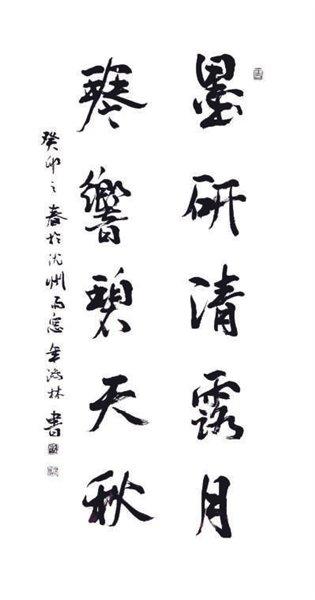 墨研清露月
琴響碧天秋
癸卯之春於沈州雨窗金林書